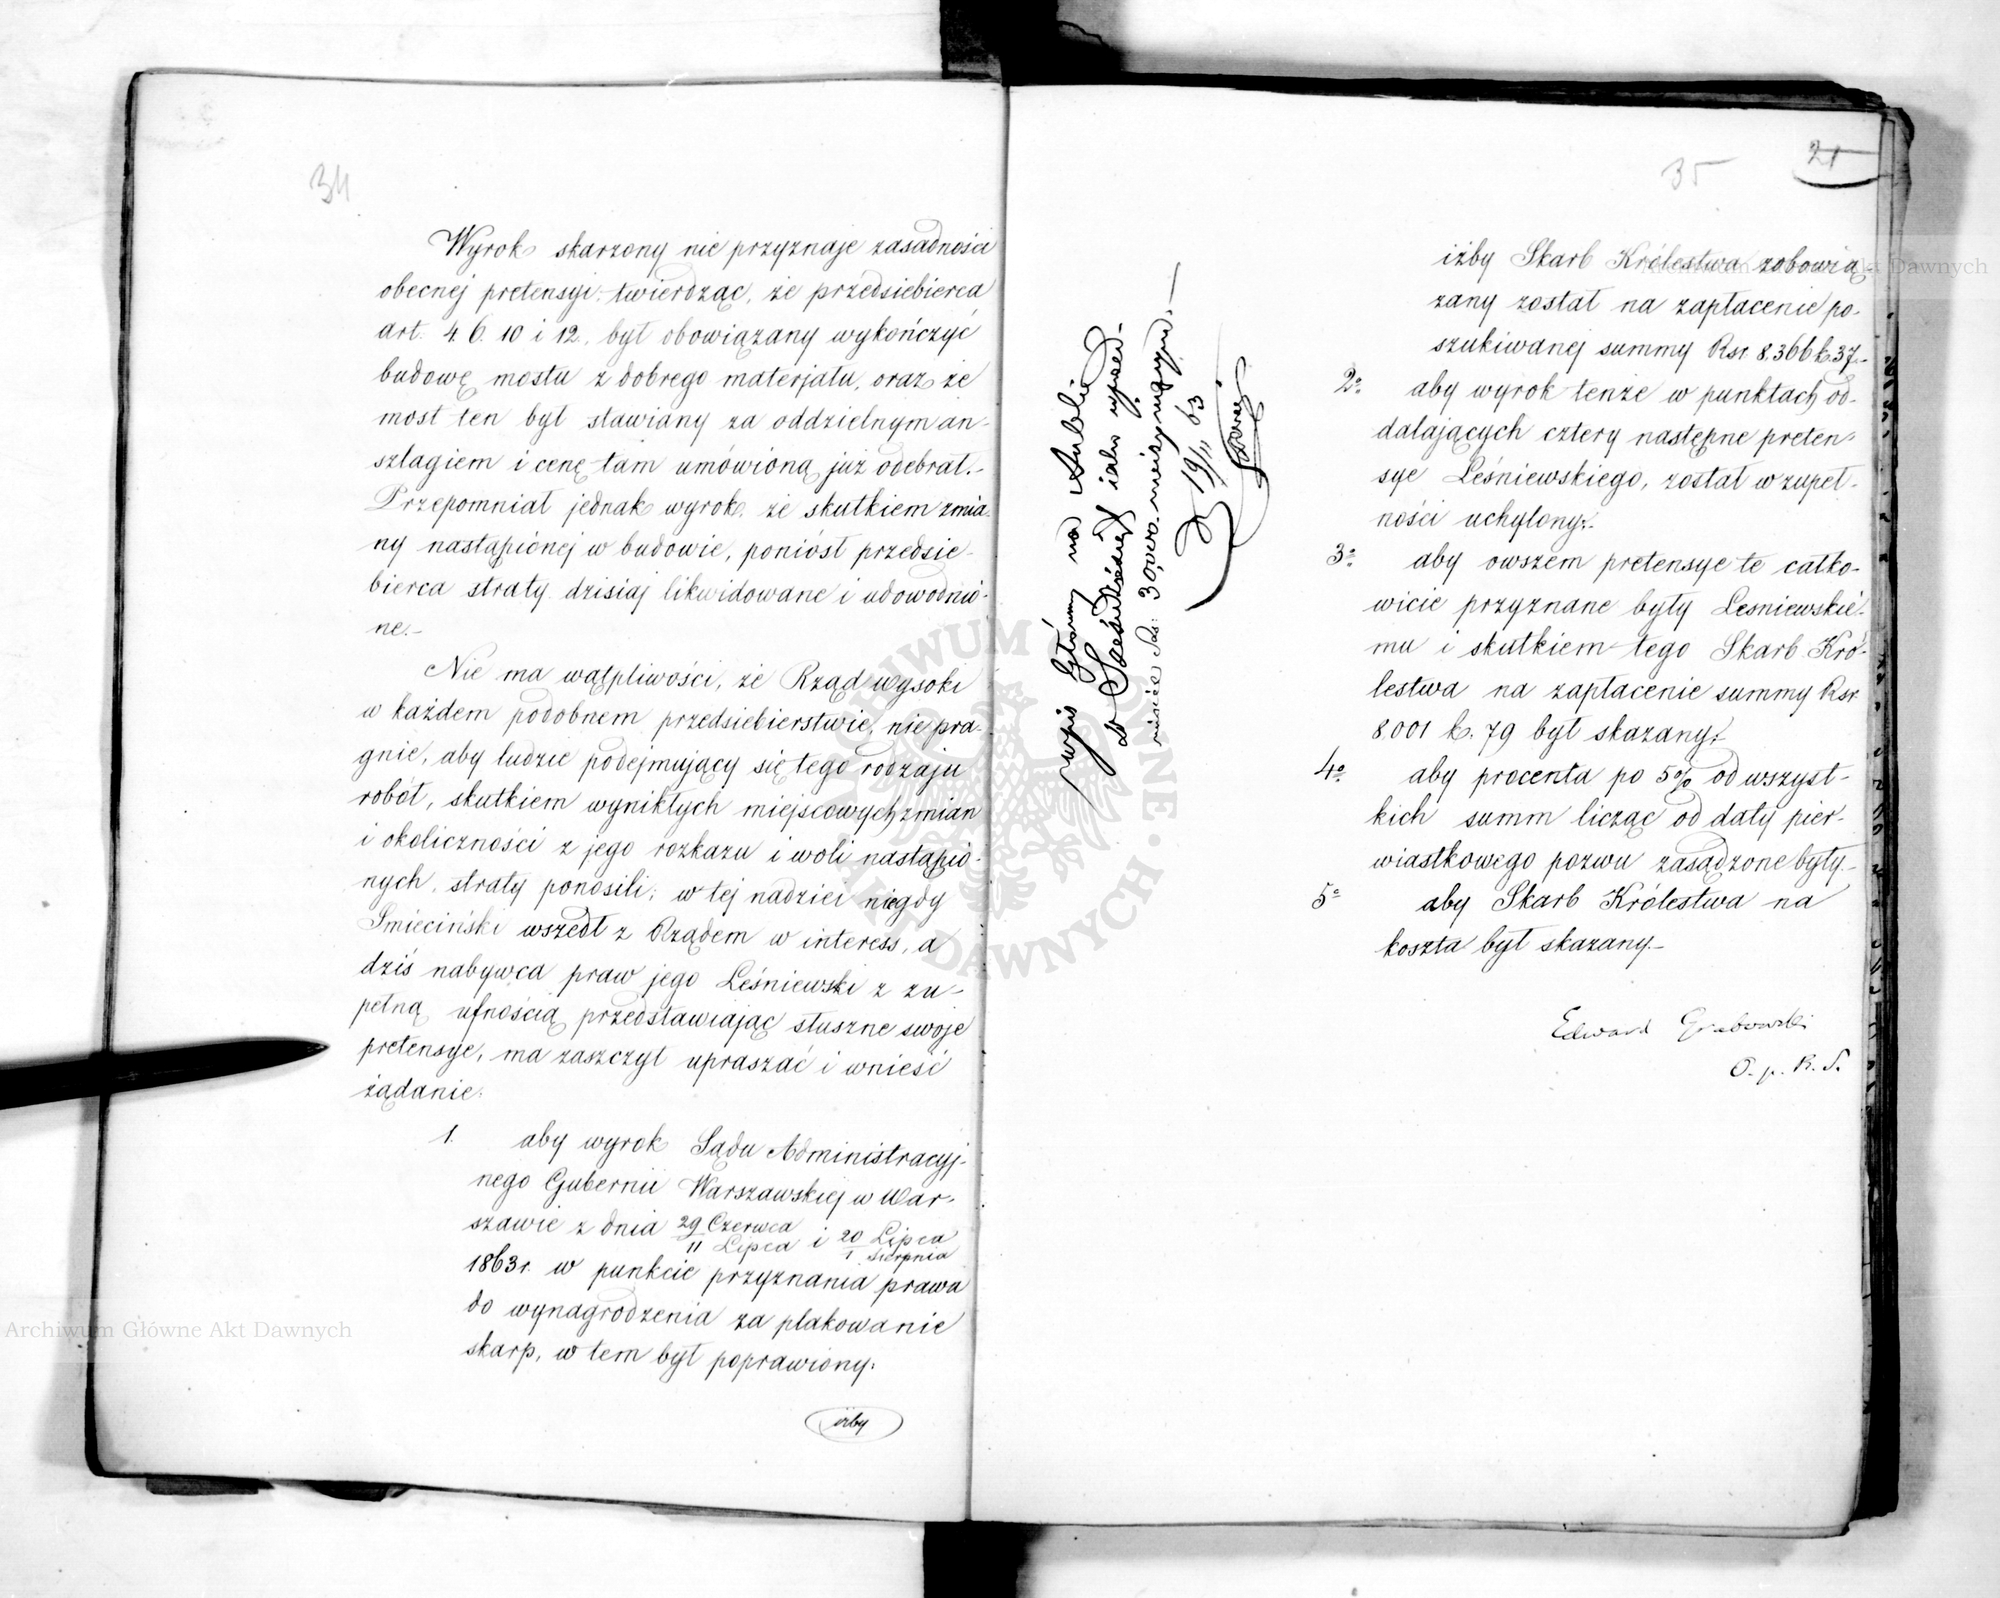 34
Wyrok skarzony nie przyznaje zasadności
obecnej pretensyi, twierdząc, że przedsiebierca
art. 4. 6. 10 i 12. był obowiązany wykończyć
budowę mostu z dobrego materjału, oraz że
most ten był stawiany za oddzielnym an-
szlagiem i cenę tam umówioną już odebrał.-
Przepomniał jednak wyrok, że skutkiem zmia-
ny nastąpionej w budowie, poniósł przedsie-
bierca straty dzisiaj likwidowane i udowodnio-
ne.-
Nie ma wątpliwości, że Rząd wysoki
w każdem podobnem przedsiebierstwie, nie pra-
gnie, aby ludzie podejmujący się tego rodzaju
robót, skutkiem wynikłych miejscowych zmian
i okoliczności z jego rozkazu i woli nastąpio-
nych, straty ponosili; w tej nadziei niegdy
Śmieciński wszedł z Rządem w interess, a
dziś nabywca praw jego Leśniewski z zu-
pełną ufnością przedstawiając słuszne swoje
pretensye, ma zaszczyt upraszać i wnieść
żądanie:
1. aby wyrok Sądu Administracyj-
nego Gubernii Warszawskiej w War-
szawie z dnia 29 Czerwca / 11 Lipca i 20 Lipca / 1 Sierpnia
1863 r. w punkcie przyznania prawa
do wynagrodzenia za plakowanie
skarp, w tem był poprawiony.
iżby
35
21
iżby Skarb Królestwa zobowią-
zany został na zapłacenie po-
szukiwanej summy Rsr 8,366 k. 37.-
2o aby wyrok tenże w punktach od-
dalających cztery następne preten-
sye Leśniewskiego, został w zupeł-
ności uchylony.-
3o aby owszem pretensye te całko-
wicie przyznane były Lesniewskie-
mu i skutkiem tego Skarb Kró-
lestwa na zapłacenie summy Rsr
8,001 k. 79 był skazany.
4o aby procenta po 5% od wszyst-
kich summ licząc od daty pier-
wiastkowego pozwu zasądzone były.-
5o aby Skarb Królestwa na
koszta był skazany.-
Edward Grabowski
O. p. R. S.
na
19/11 63
Archiwum Główne Akt Dawnych
Archiwum Główne Akt Dawnych
ARCHIWUM GŁÓWNE AKT DAWNYCH